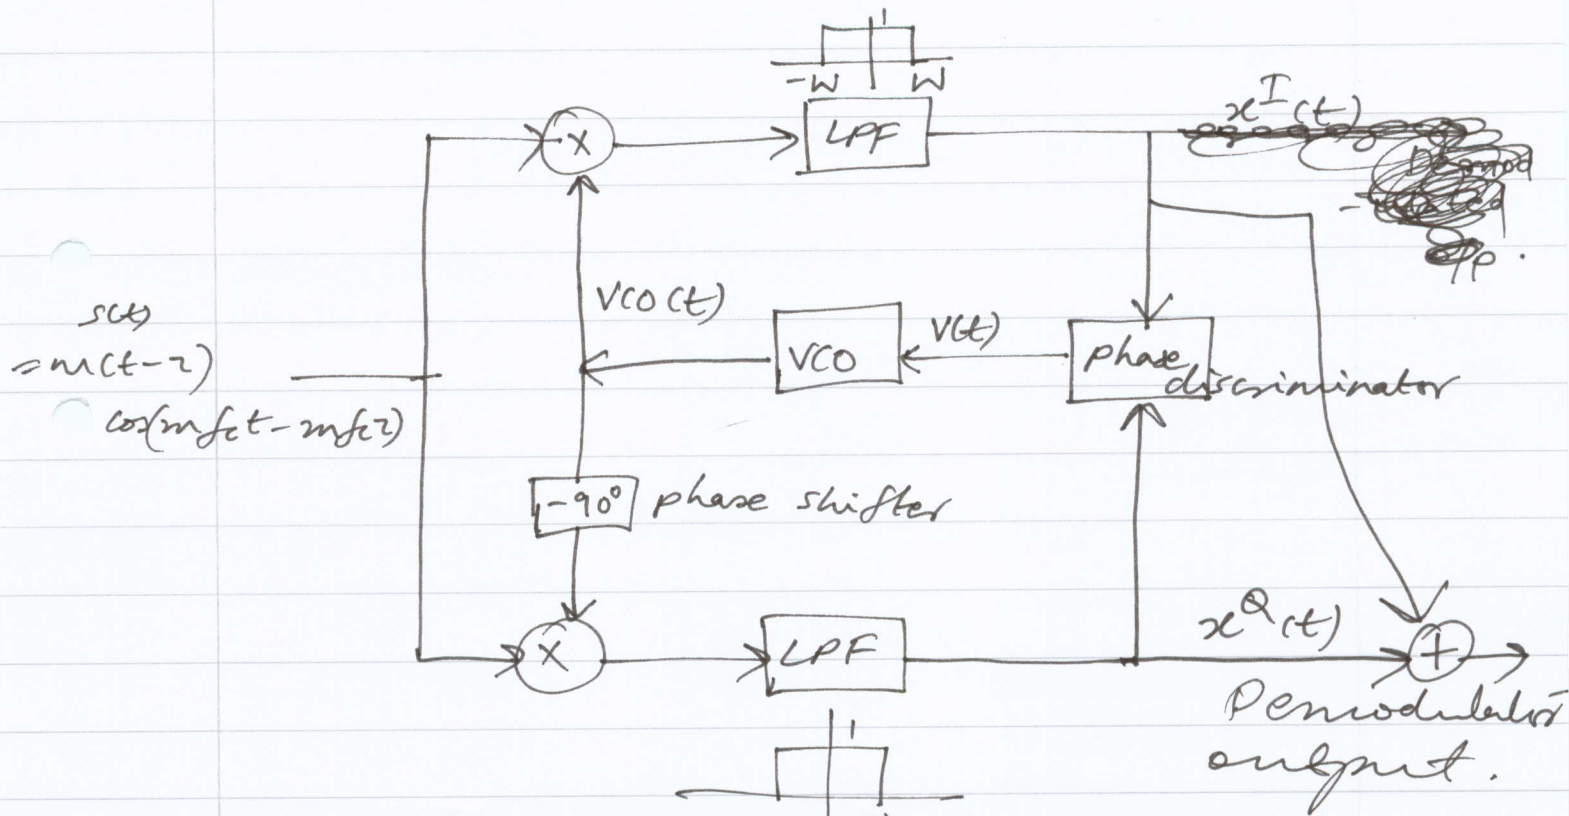 1
-W W
x^I(t)
LPF
x
VCO(t)
s(t)
= m(t-τ)
cos(2πfct - 2πfcτ)
VCO
V(t)
phase
discriminator
-90° phase shifter
x
LPF
x^Q(t)
+
1
Demodulator
output.